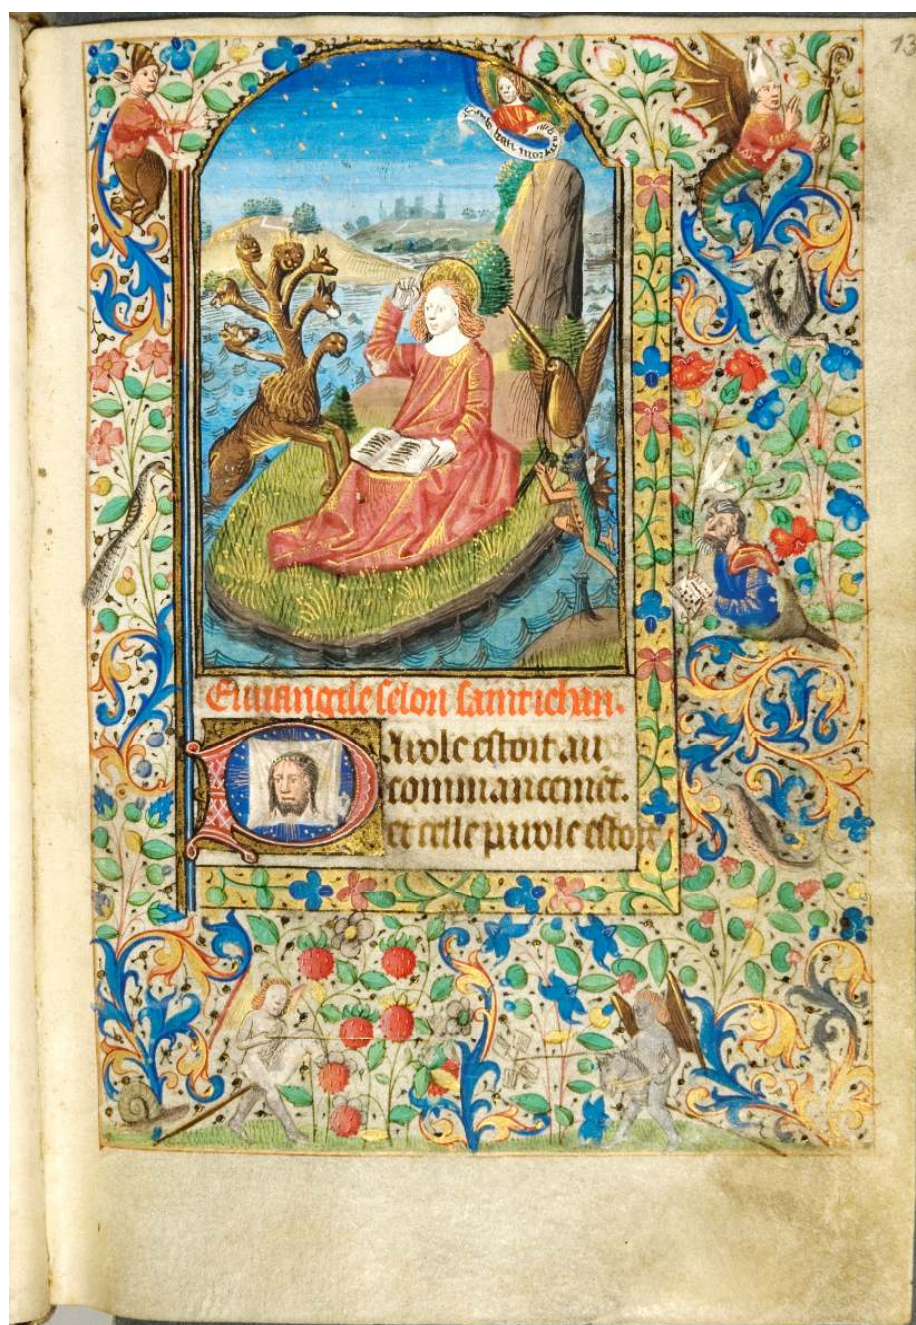 13
Euuangile selon saint iehan.
Parole estoit au
commancemēt.
et celle parole estoit